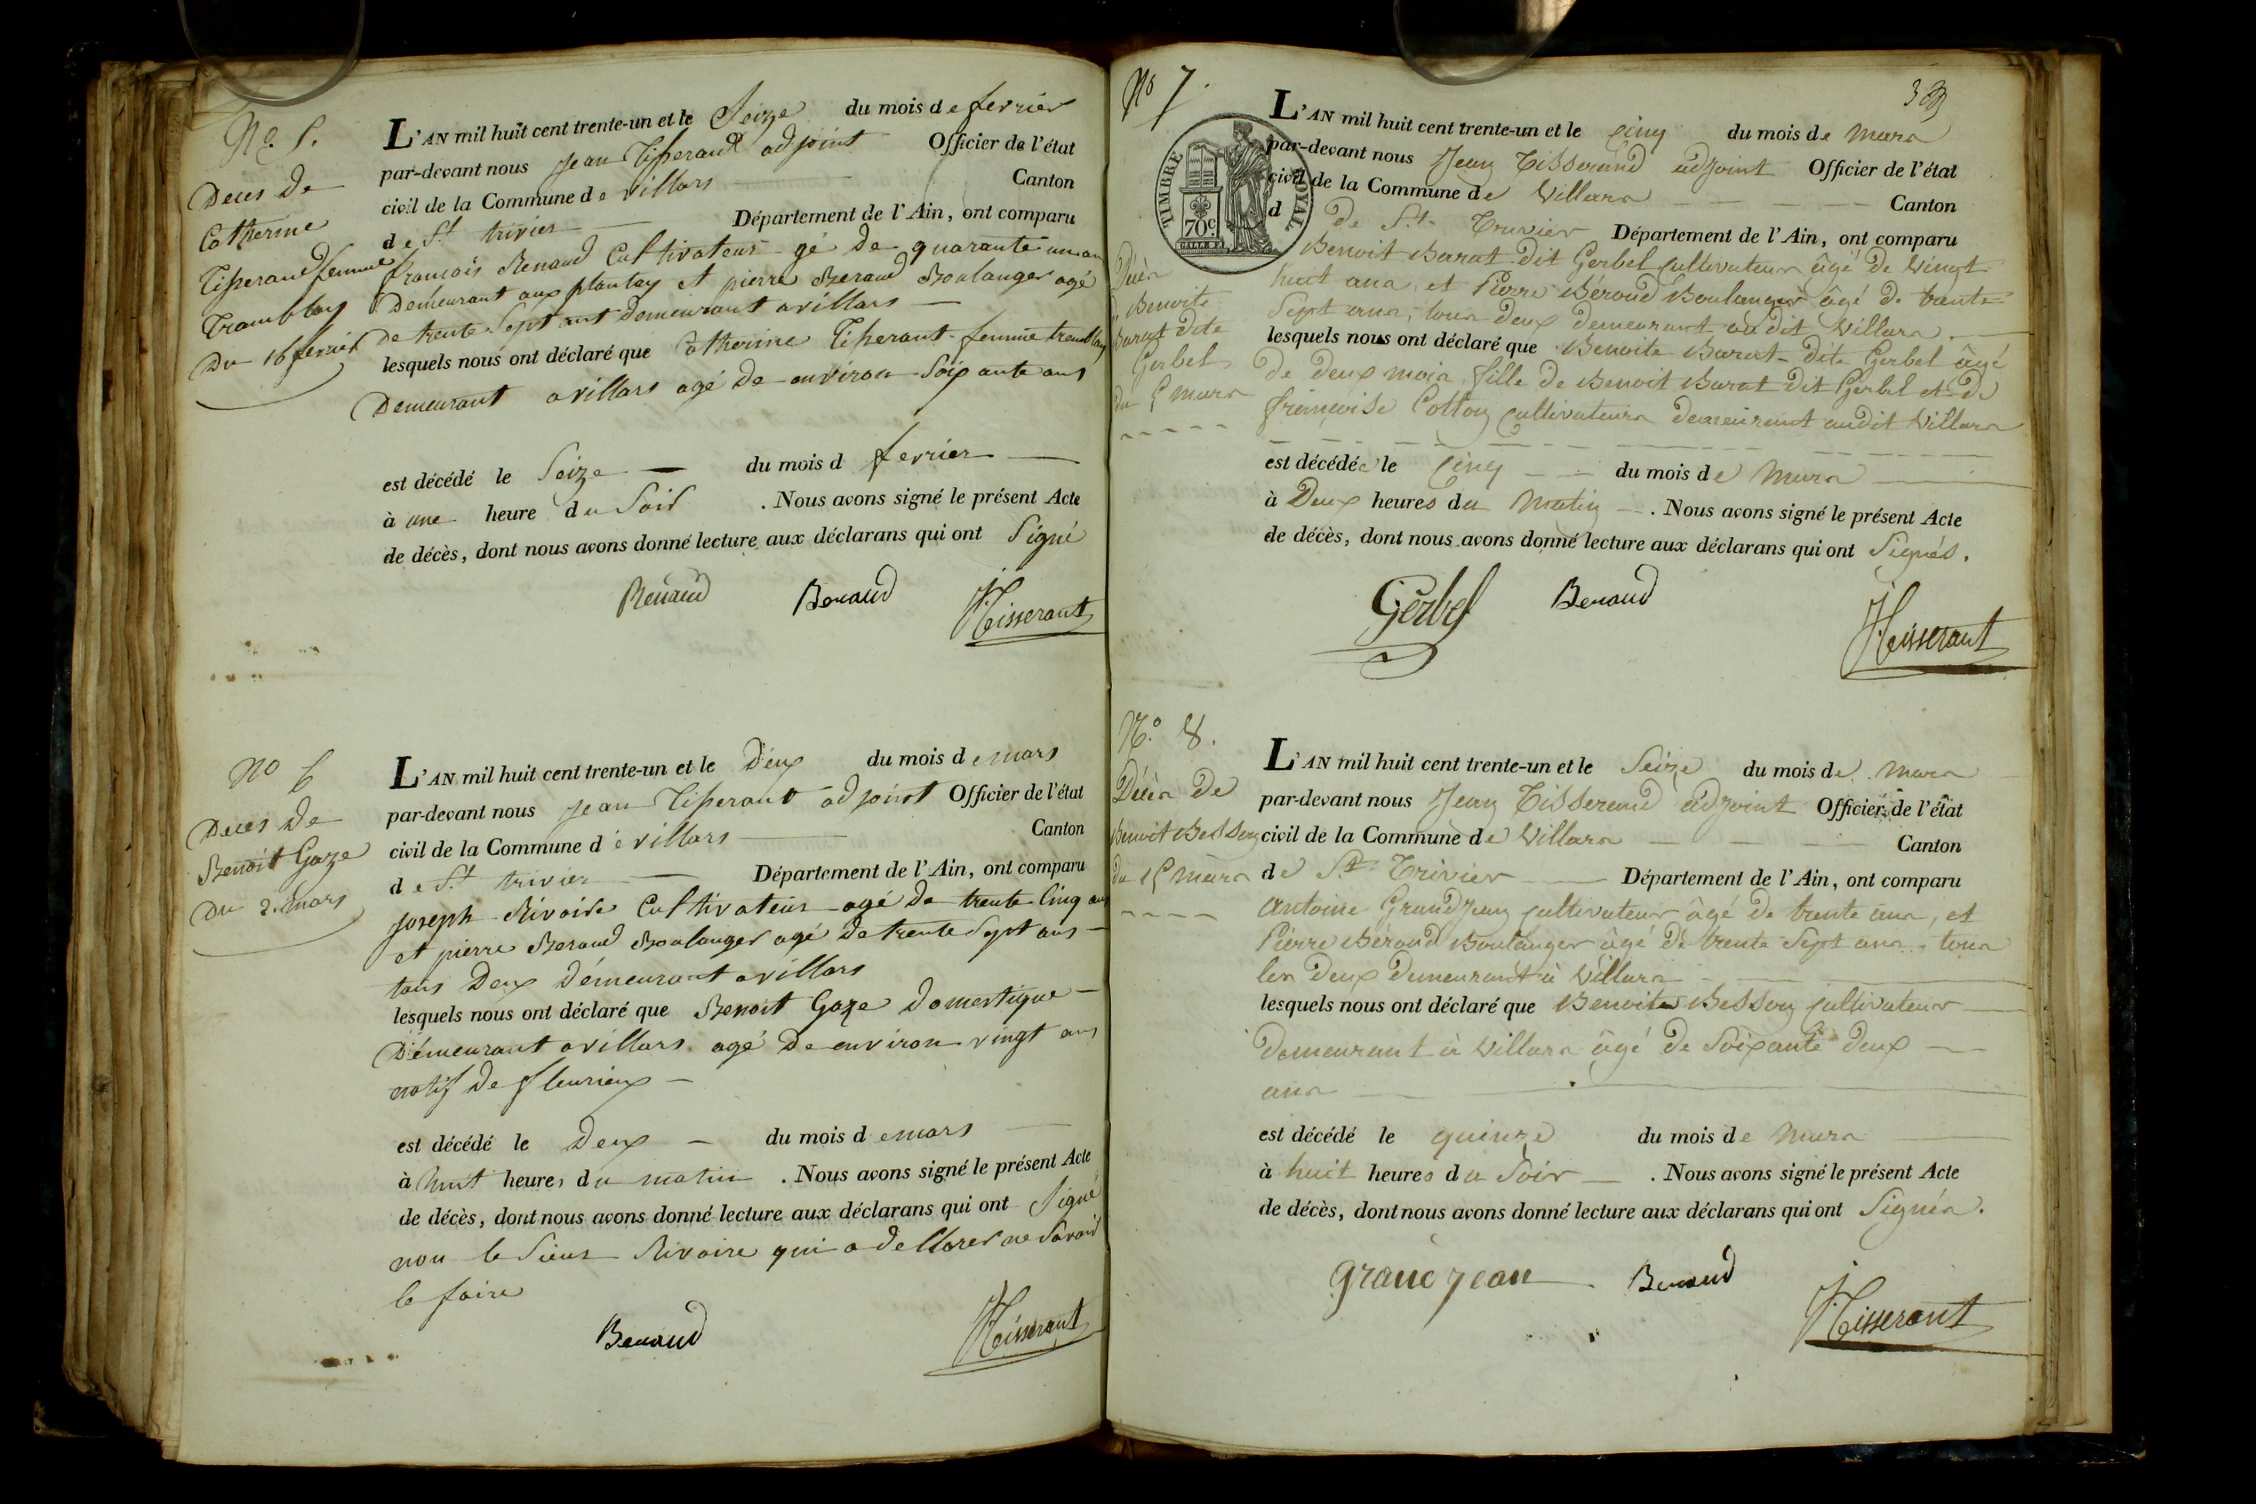 No. 5.
Deces de
Catherine
Tisserand femme
Tramblay
Du 16 fevrier
L'AN mil huit cent trente-un et le Seize du mois de fevrier
par-devant nous jean Tisserant adjoint Officier de l'état
civil de la Commune de villars Canton
de St. trivier Département de l'Ain, ont comparu
francois Renaud Cultivateur gé de quarante un an
Demeurant aux plantay et pierre Beraud Boulanger agé
de trente Sept ans demeurant a villars
lesquels nous ont déclaré que Catherine Tisserant femme tramblay
Demeurant a villars agé de environ Soixante ans
est décédé le Seize du mois d fevrier
à une heure du Soir . Nous avons signé le présent Acte
de décès, dont nous avons donné lecture aux déclarans qui ont Signé
Renaud Beraud JTisserant
No 6
Deces de
Benoit Gaze
Du 2. mars
L'AN mil huit cent trente-un et le Deux du mois de mars
par-devant nous jean Tisserant adjoint Officier de l'état
civil de la Commune de villars Canton
de St. trivier Département de l'Ain, ont comparu
joseph Rivoire Cultivateur agé de trente Cinq ans
et pierre Beraud Boulanger agé de trente Sept ans
tous Deux Demeurant a villars
lesquels nous ont déclaré que Benoit Gaze Domestique
Démeurant a villars agé De environ vingt ans
natif de fleurieux
est décédé le Deux du mois de mars
à huit heures du matin . Nous avons signé le présent Acte
de décès, dont nous avons donné lecture aux déclarans qui ont Signé
non le Sieur Rivoire qui a declarer ne Savoir
le faire
Beraud JTisserant
No 7.
TIMBRE ROYAL
70c
Décès
Benoite
Barat dite
Gerbel
du 5 mars
L'AN mil huit cent trente-un et le cinq du mois de Mars
par-devant nous Jean Tisserand adjoint Officier de l'état
civil de la Commune de Villars Canton
d De St. Trivier Département de l'Ain, ont comparu
Benoit Barat dit Gerbel cultivateur âgé de vingt
huit ans, et Pierre Béroud Boulanger âgé de trente
Sept ans, tous deux demeurant audit Villars
lesquels nous ont déclaré que Benoite Barat dite Gerbel âgé
De Deux mois fille de Benoit Barat dit Gerbel et de
francoise Cottoy cultivateurs demeurant audit Villars
est décédée le Cinq du mois de Mars
à Deux heures du Matin . Nous avons signé le présent Acte
de décès, dont nous avons donné lecture aux déclarans qui ont Signés.
Gerbel Beraud
JTisserant
No. 8.
Décès De
Benoit Besson
du 15 mars
L'AN mil huit cent trente-un et le Seize du mois de Mars
par-devant nous Jean Tisserand adjoint Officier de l'état
civil de la Commune de Villars Canton
de St. Trivier Département de l'Ain, ont comparu
Antoine Grandjean cultivateur âgé de trente ans, et
Pierre Béroud Boulanger âgé de trente Sept ans, tous
les Deux Demeurant à Villars
lesquels nous ont déclaré que Benoit Besson cultivateur
Demeurant à Villars âgé de Soixante deux
ans
est décédé le quinze du mois de Mars
à huit heures du Soir . Nous avons signé le présent Acte
de décès, dont nous avons donné lecture aux déclarans qui ont Signés.
grand jean Beraud
JTisserant